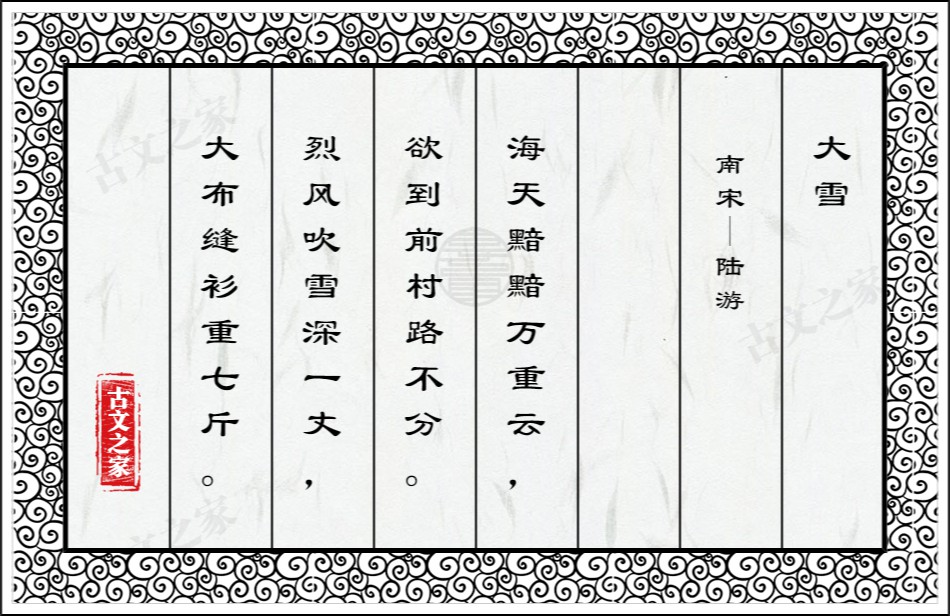 大雪
南宋—陆游
海天黯黯万重云，
欲到前村路不分。
烈风吹雪深一丈，
大布缝衫重七斤。
古文之家
古文之家
古文之家
古文之家